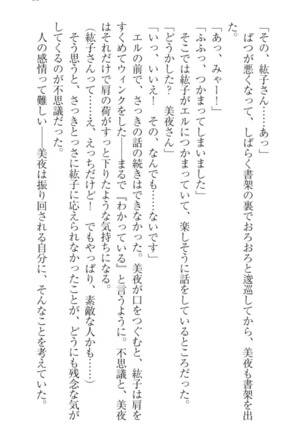 「その、紘子さん……あっ」
　ばつが悪くなって、しばらく書架の裏でおろおろと逡巡してから、美夜も書架を出
た。
「あっ、みゃー！」
「ふふっ、つかまってしまいました」
　そこでは紘子がエルにつかまっていて、楽しそうに話をしているところだった。
「どうかした？　美夜さん」
「いっ、いいえ！　その、なんでも……ないです」
　エルの前で、さっきの話の続きはできなかった。美夜が口をつぐむと、紘子は肩を
すくめてウインクをした――まるで『わかっている』と言うように。不思議と、美夜
はそれだけで肩の荷がすっと下りたような気持ちになる。
（紘子さんって……え、えっちだけど！　でもやっぱり、素敵な人かも……）
　そう思うと、さっきとっさに紘子に応えられなかったことが、どうにも残念な気が
してくるのが不思議だった。
　人の感情って難しい――美夜は振り回される自分に、そんなことを考えていた。